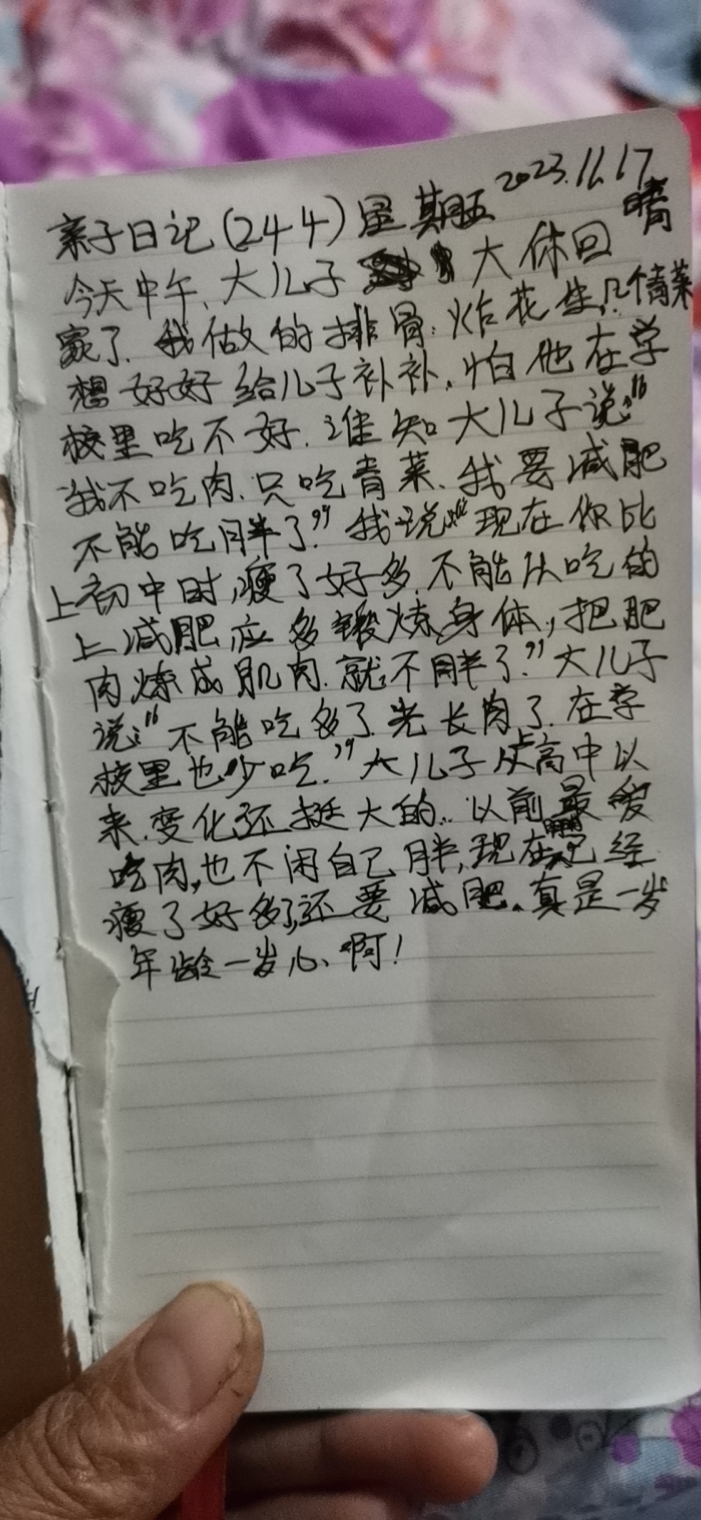 亲子日记(244)星期五 2023.11.17
晴
今天中午、大儿子大休回
家了.我做的排骨.炸花生.几个青菜
想好好给儿子补补.怕他在学
校里吃不好.谁知大儿子说:“
我不吃肉.只吃青菜.我要减肥
不能吃胖了.”我说:“现在你比
上初中时,瘦了好多.不能从吃的
上减肥,应多锻炼身体,把肥
肉炼成肌肉.就不胖了.”大儿子
说:“不能吃多了.光长肉了.在学
校里也少吃.”大儿子从上高中以
来.变化还挺大的..以前最爱
吃肉,也不闲自己胖,现在已经
瘦了好多了,还要减肥.真是一岁
年龄一岁心、啊!